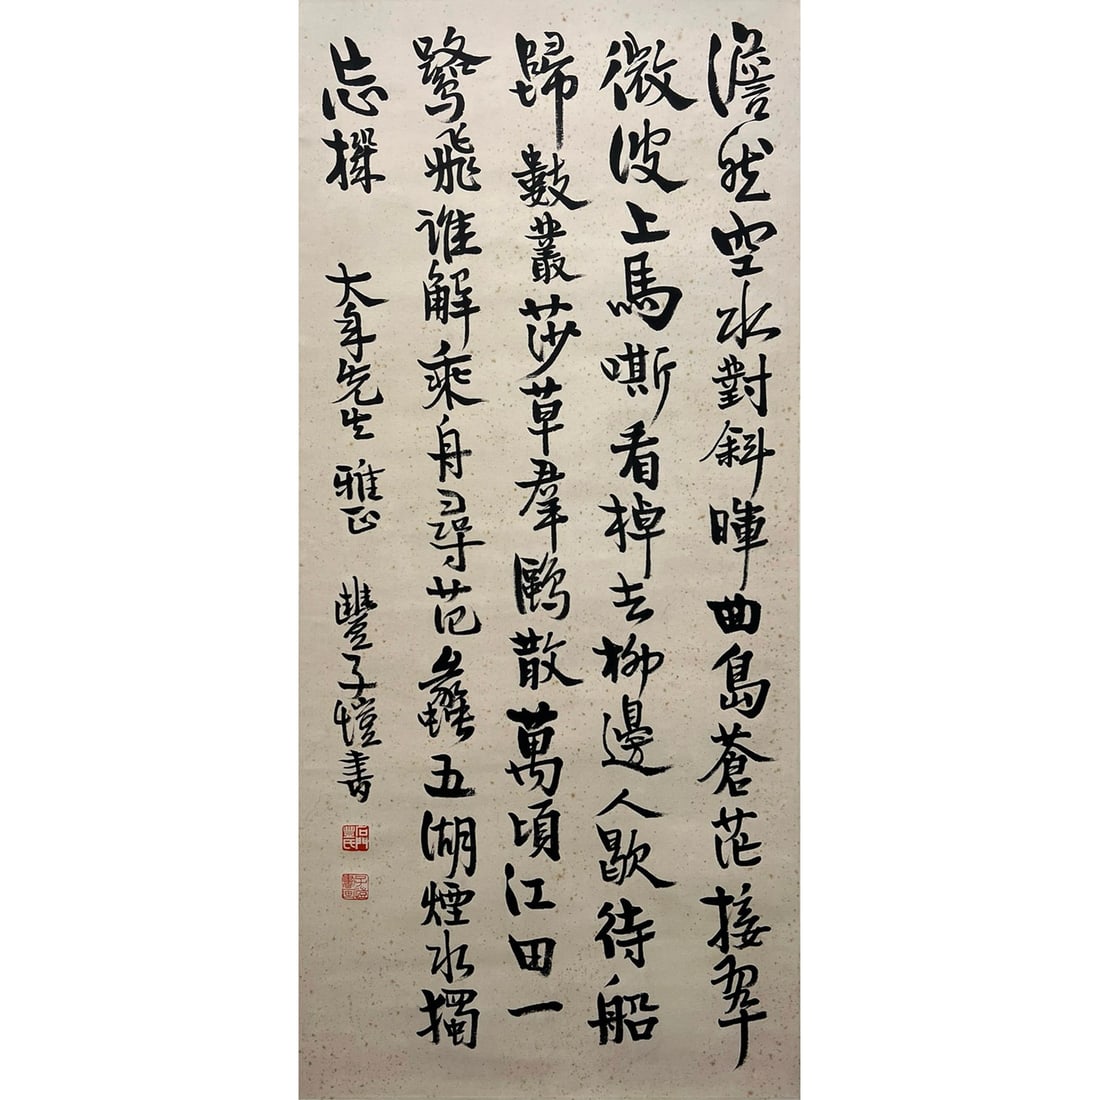 澹然空水對斜暉曲島蒼茫接翠
微波上馬嘶看棹去柳邊人歇待船
歸數叢莎草羣鷗散萬頃江田一
鷺飛谁解乘舟尋范蠡五湖煙水獨
忘機 大年先生雅正 豐子愷書
石門豐氏
子愷書畫